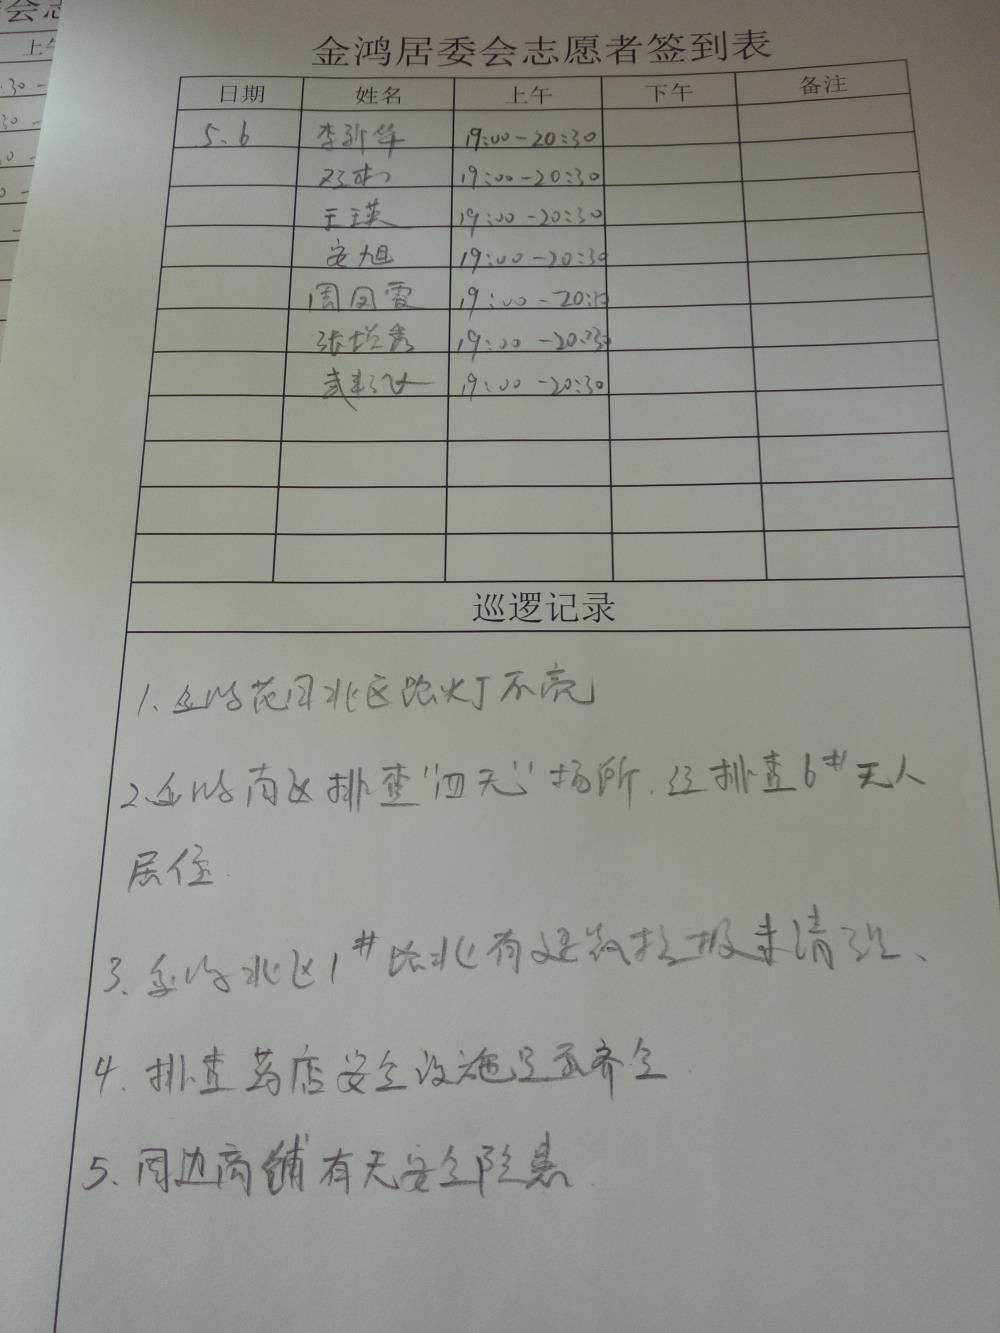 金鸿居委会志愿者签到表
日期 姓名 上午 下午 备注
5.6 李新华 19:00-20:30
19:00-20:30
王瑛 19:00-20:30
安旭 19:00-20:30
周凤霞 19:00-20:30
张增秀 19:00-20:30
19:00-20:30
巡逻记录
1.金鸿花园北区路灯不亮
2.金鸿南区排查"四无"场所.经排查6#无人
居住
3.金鸿北区1#路北有建筑垃圾未清理、
4.排查药店安全设施是否齐全
5.周边商铺有无安全隐患